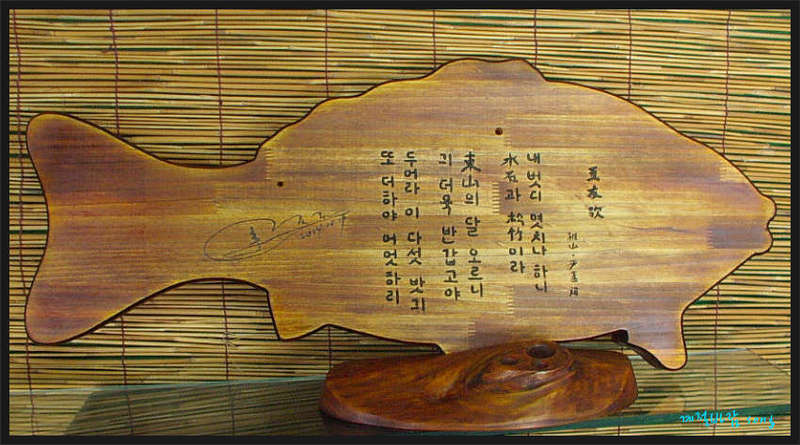 五友歌
孤山·尹善道
내 벗디 몃치나 하니
水石과 松竹이라
東山의 달 오르니
긔 더욱 반갑고야
두어라 이 다섯 밧긔
또 더하야 머엇하리